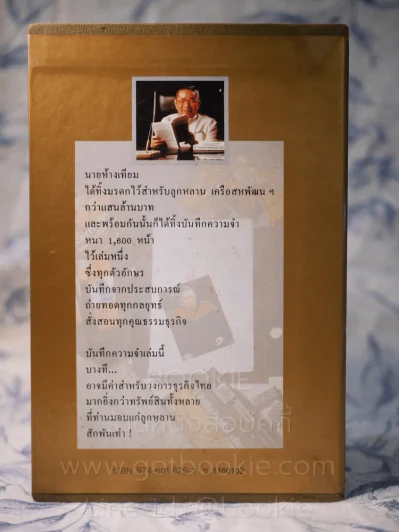 นายห้างเทียม
ได้ทิ้งมรดกไว้สำหรับลูกหลาน เครือสหพัฒน ฯ
กว่าแสนล้านบาท
และพร้อมกันนั้นก็ได้ทิ้งบันทึกความจำ
หนา 1,600 หน้า
ไว้เล่มหนึ่ง
ซึ่งทุกตัวอักษร
บันทึกจากประสบการณ์
ถ่ายทอดทุกกลยุทธ์
สั่งสอนทุกคุณธรรมธุรกิจ
บันทึกความจำเล่มนี้
บางที...
อาจมีค่าสำหรับวงการธุรกิจไทย
มากยิ่งกว่าทรัพย์สินทั้งหลาย
ที่ท่านมอบแก่ลูกหลาน
สักพันเท่า !
BOOKIE
www.gotbookie.com
ISBN